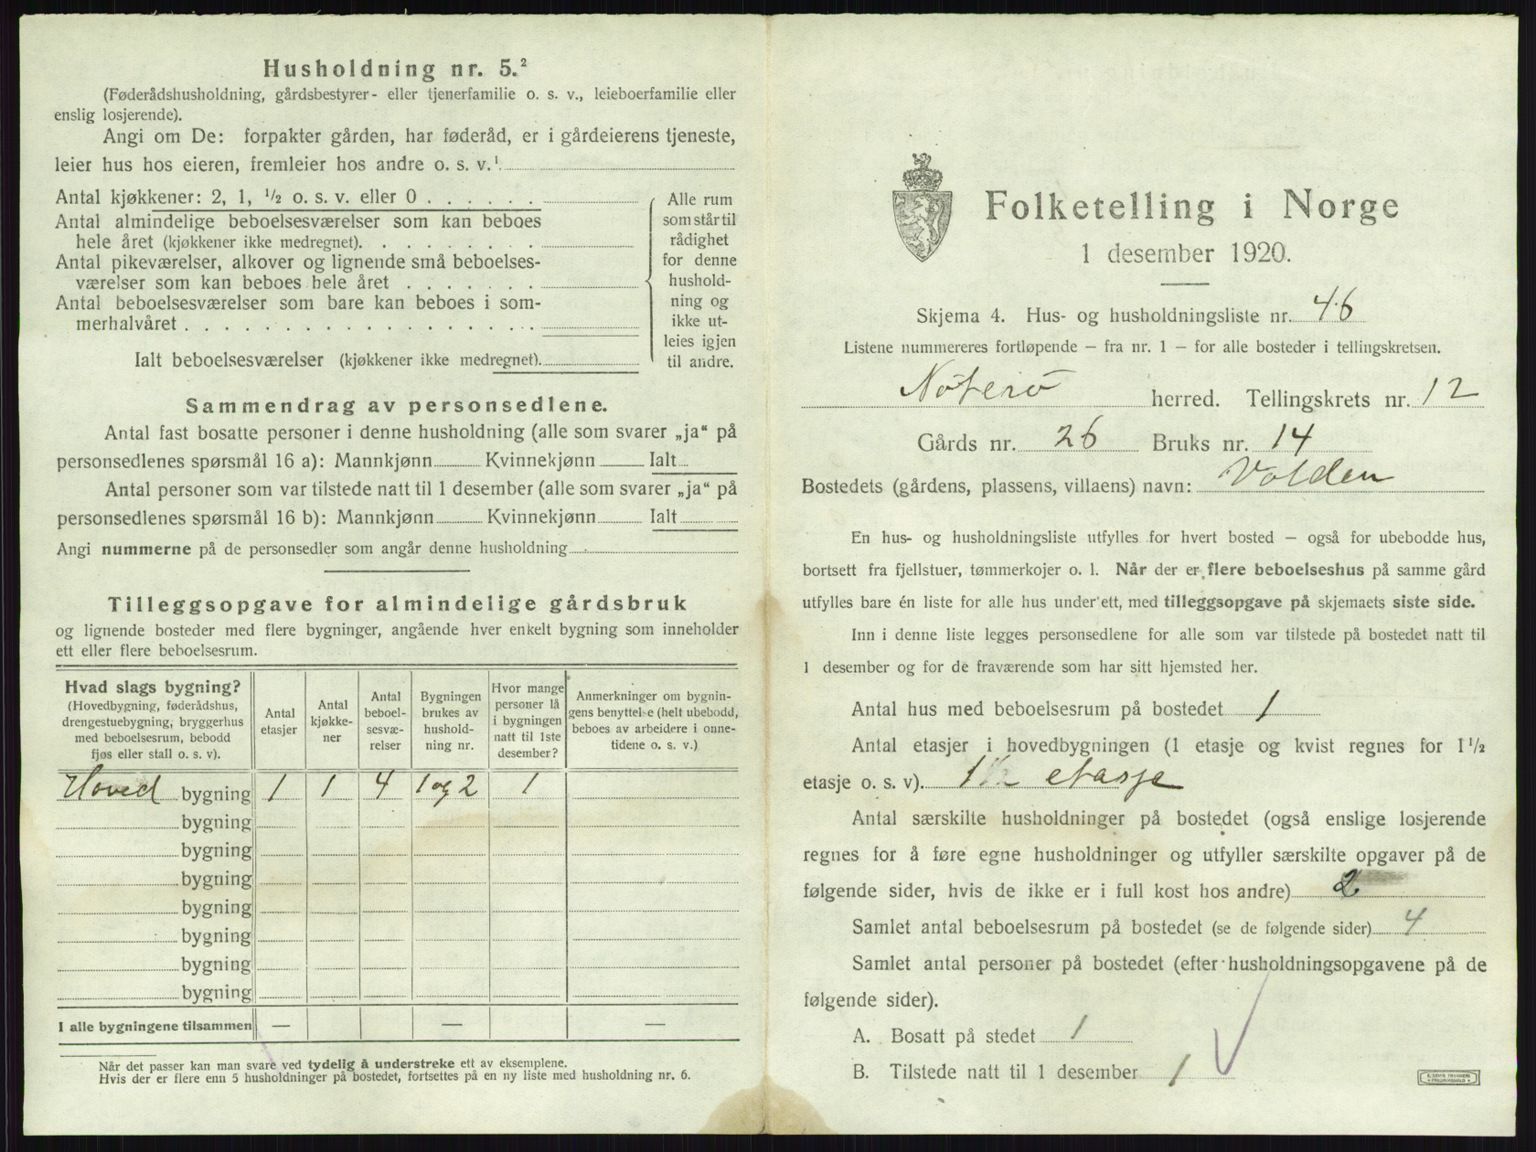 Husholdning nr. 5.²
(Føderådshusholdning, gårdsbestyrer- eller tjenerfamilie o. s. v., leieboerfamilie eller
enslig losjerende).
Angi om De: forpakter gården, har føderåd, er i gårdeierens tjeneste,
leier hus hos eieren, fremleier hos andre o. s. v.¹
Antal kjøkkener: 2, 1, 1/2 o. s. v. eller 0 . . . . . .
Antal almindelige beboelsesværelser som kan beboes
hele året (kjøkkener ikke medregnet). . . . . . . . .
Antal pikeværelser, alkover og lignende små beboelses-
værelser som kan beboes hele året . . . . . . .
Antal beboelsesværelser som bare kan beboes i som-
merhalvåret . . . . . . . . . . . . . . . . . .
Ialt beboelsesværelser (kjøkkener ikke medregnet).
Alle rum
som står til
rådighet
for denne
hushold-
ning og
ikke ut-
leies igjen
til andre.
Sammendrag av personsedlene.
Antal fast bosatte personer i denne husholdning (alle som svarer „ja“ på
personsedlenes spørsmål 16 a): Mannkjønn Kvinnekjønn Ialt
Antal personer som var tilstede natt til 1 desember (alle som svarer „ja“ på
personsedlenes spørsmål 16 b): Mannkjønn Kvinnekjønn Ialt
Angi nummerne på de personsedler som angår denne husholdning
Tilleggsopgave for almindelige gårdsbruk
og lignende bosteder med flere bygninger, angående hver enkelt bygning som inneholder
ett eller flere beboelsesrum.
Hvad slags bygning?
(Hovedbygning, føderådshus,
drengestuebygning, bryggerhus
med beboelsesrum, bebodd
fjøs eller stall o. s. v).
Antal
etasjer
Antal
kjøkke-
ner
Antal
beboel-
sesvæ-
relser
Bygningen
brukes av
hushold-
ning nr.
Hvor mange
personer lå
i bygningen
natt til 1ste
desember?
Anmerkninger om bygnin-
gens benyttelse (helt ubebodd,
beboes av arbeidere i onne-
tidene o. s. v.)
Hoved bygning 1 1 4 1 og 2 1
bygning
bygning
bygning
bygning
bygning
bygning
bygning
I alle bygningene tilsammen — — —
Når det passer kan man svare ved tydelig å understreke ett av eksemplene.
Hvis der er flere enn 5 husholdninger på bostedet, fortsettes på en ny liste med husholdning nr. 6.
Folketelling i Norge
1 desember 1920.
Skjema 4. Hus- og husholdningsliste nr. 46
Listene nummereres fortløpende — fra nr. 1 — for alle bosteder i tellingskretsen.
Nøterø herred. Tellingskrets nr. 12
Gårds nr. 26 Bruks nr. 14
Bostedets (gårdens, plassens, villaens) navn: Volden
En hus- og husholdningsliste utfylles for hvert bosted — også for ubebodde hus,
bortsett fra fjellstuer, tømmerkojer o. l. Når der er flere beboelseshus på samme gård
utfylles bare én liste for alle hus under ett, med tilleggsopgave på skjemaets siste side.
Inn i denne liste legges personsedlene for alle som var tilstede på bostedet natt til
1 desember og for de fraværende som har sitt hjemsted her.
Antal hus med beboelsesrum på bostedet 1
Antal etasjer i hovedbygningen (1 etasje og kvist regnes for 1 1/2
etasje o. s. v). 1 1/2 etasje
Antal særskilte husholdninger på bostedet (også enslige losjerende
regnes for å føre egne husholdninger og utfyller særskilte opgaver på de
følgende sider, hvis de ikke er i full kost hos andre) 2
Samlet antal beboelsesrum på bostedet (se de følgende sider) 4
Samlet antal personer på bostedet (efter husholdningsopgavene på de
følgende sider).
A. Bosatt på stedet 1
B. Tilstede natt til 1 desember 1